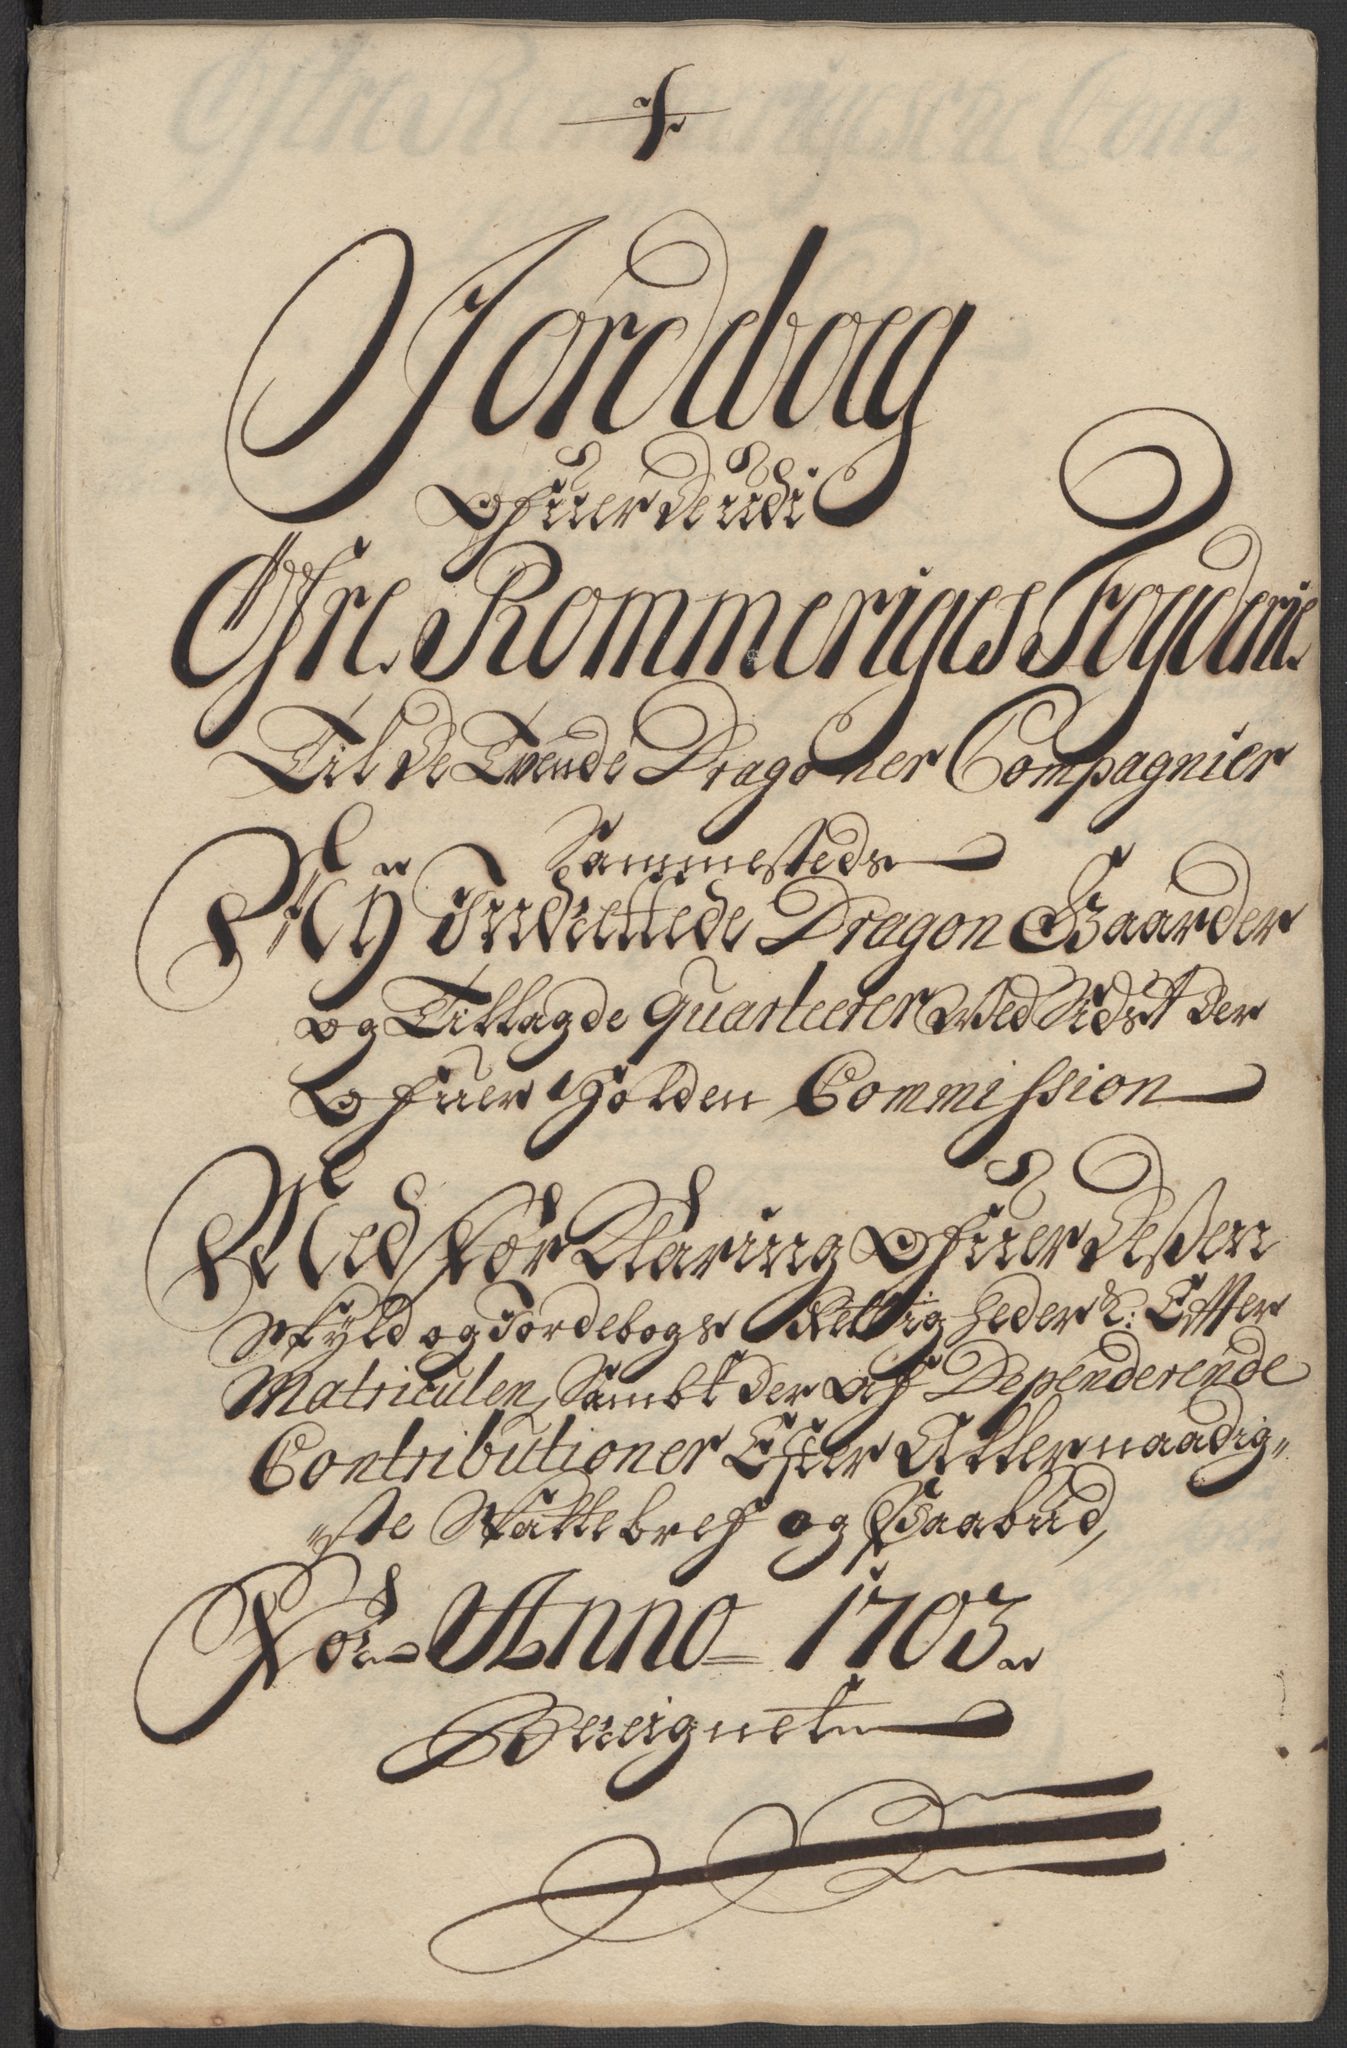 Jordebog
Ofuer De udi
Øfre Rommeriges Fogderie
Til De Tvende Dragoner Compagnier
Sammesteds
Nÿ Inddeellede Dragon Gaarder
og Tillagde quarteerer Ved Sidst der
Ofuer Holden Commission
Med forKlaring Ofuer deßen
Skyld og Jordebogs Rettigheder &: Effter
Matriculen, Sambt der af Dependerende
Contributioner Efter Allernaadig-
ste Skattebref og Paabud,
For Anno 1703
Bereignet